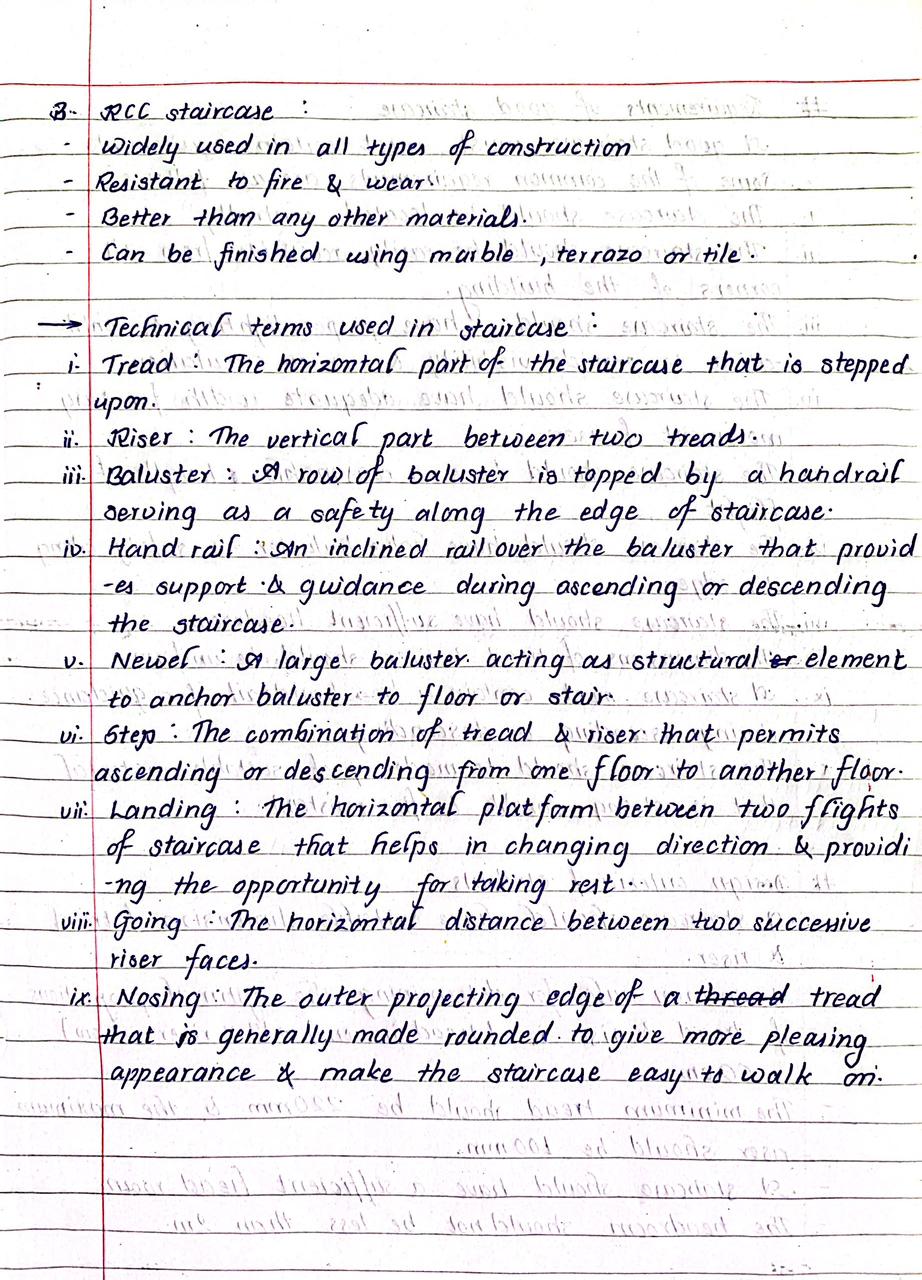 3- RCC staircase :
- Widely used in all types of construction
- Resistant to fire & wear
- Better than any other materials.
- Can be finished using marble , terrazo or tile .
→ Technical terms used in staircase :
i- Tread : The horizontal part of the staircase that is stepped
upon.
ii. Riser : The vertical part between two treads.
iii. Baluster : A row of baluster is topped by a handrail
serving as a safety along the edge of staircase.
iv. Hand rail : An inclined rail over the baluster that provid
-es support & guidance during ascending or descending
the staircase.
v. Newel : A large baluster acting as structural er element
to anchor baluster to floor or stair.
vi. Step : The combination of tread & riser that permits
ascending or descending from one floor to another floor.
vii. Landing : The horizontal platform between two flights
of staircase that helps in changing direction & providi
-ng the opportunity for taking rest.
viii. Going : The horizontal distance between two successive
riser faces.
ix. Nosing : The outer projecting edge of a thread tread
that is generally made rounded to give more pleasing
appearance & make the staircase easy to walk on.